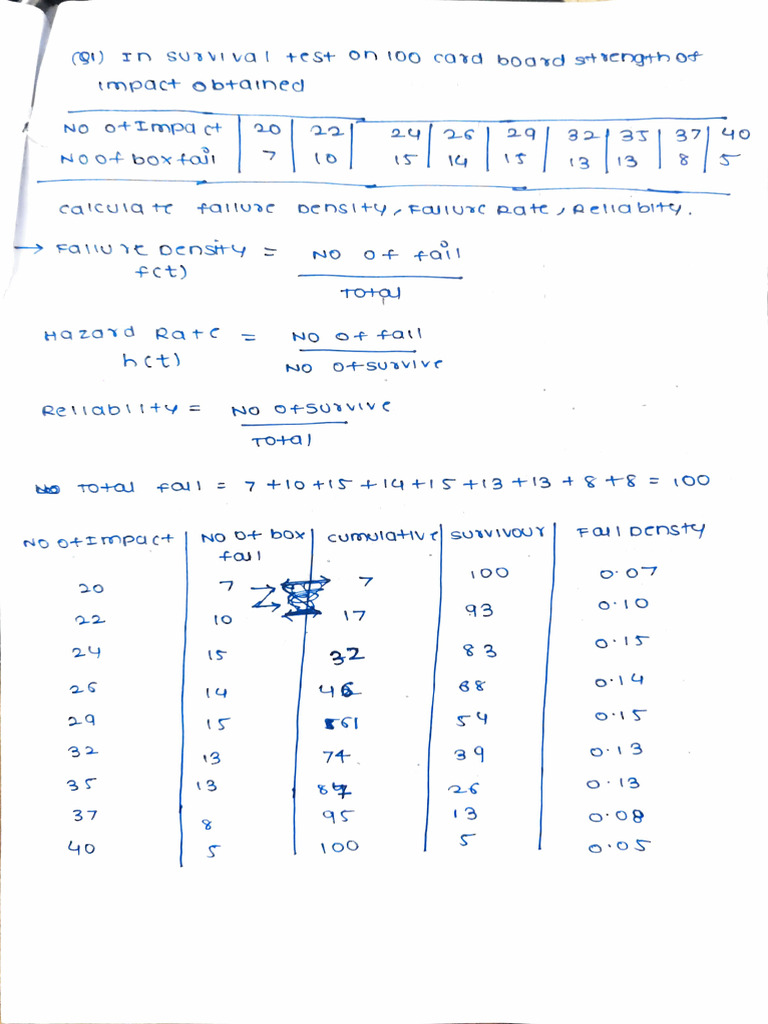 (Q1) In survival test on 100 card board strength of
impact obtained
No of Impact 20 22 24 26 29 32 35 37 40
No of box fail 7 10 15 14 15 13 13 8 5
calculate failure Density, Failure Rate, Reliabity.
→ Failure Density = No of fail
f(t) Total
Hazard Rate = No of fail
h(t) No of survive
Reliability = No of survive
Total
Total fail = 7 + 10 + 15 + 14 + 15 + 13 + 13 + 8 + 8 = 100
No of Impact No of box fail cumulative survivour Fail Densty
20 7 7 100 0.07
22 10 17 93 0.10
24 15 32 83 0.15
26 14 46 68 0.14
29 15 61 54 0.15
32 13 74 39 0.13
35 13 87 26 0.13
37 8 95 13 0.08
40 5 100 5 0.05